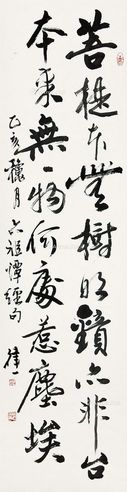 菩提本無樹明鏡亦非台
本来無一物何處惹塵埃
乙亥穐月六祖壇經句